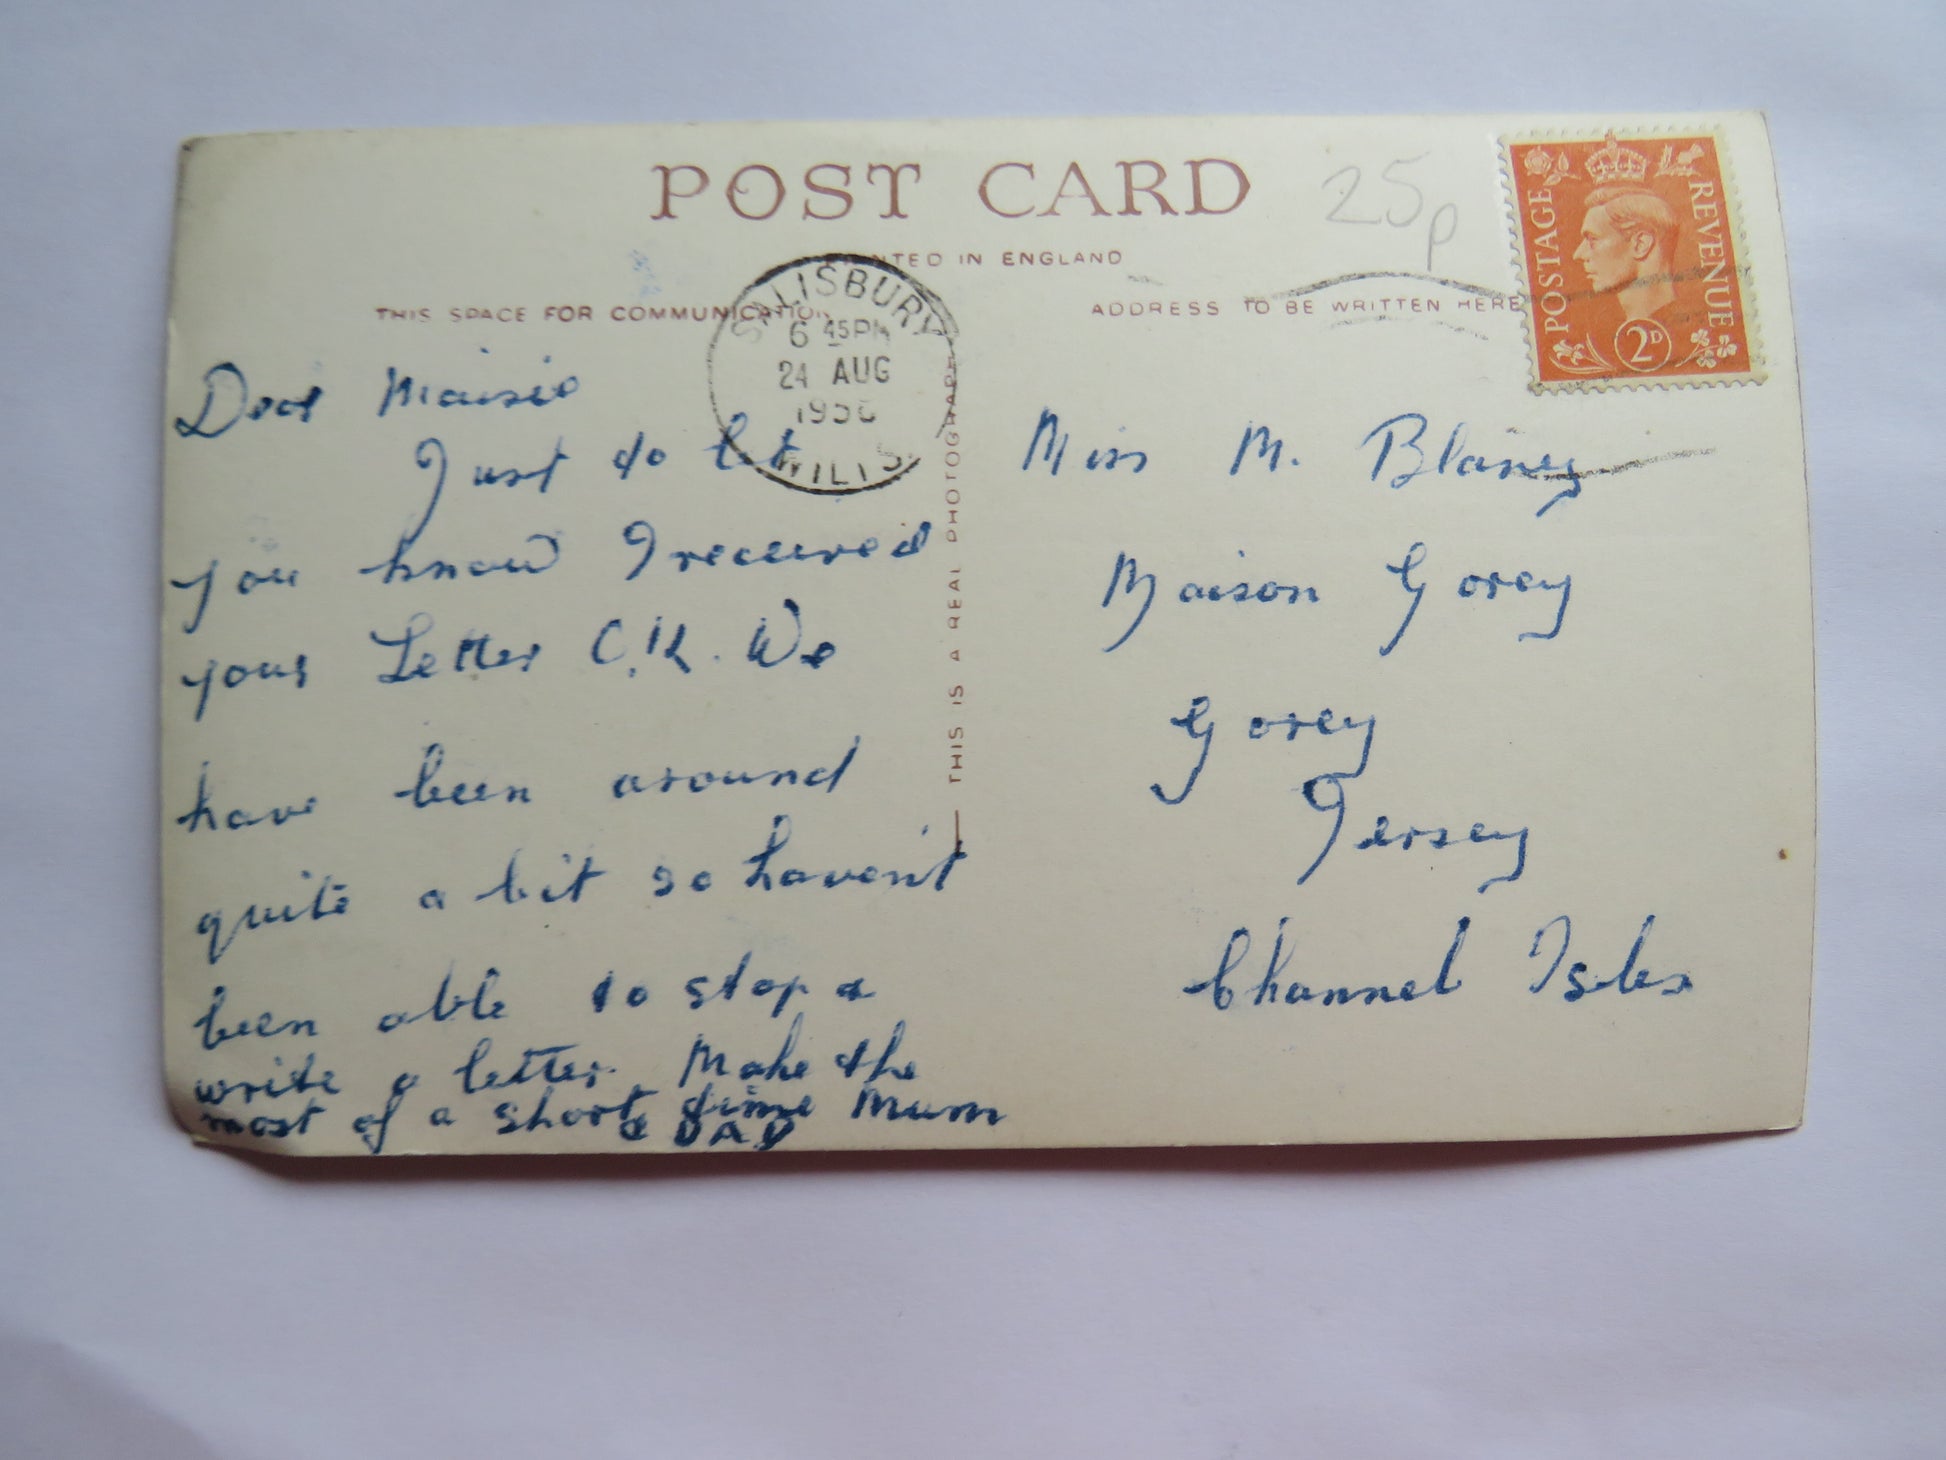 POST CARD
25p
PRINTED IN ENGLAND
THIS SPACE FOR COMMUNICATION
ADDRESS TO BE WRITTEN HERE
POSTAGE
REVENUE
2D
SALISBURY
6 45PM
24 AUG
WILTS.
Dear Maisie
Just to let
you know I received
your Letter O.K. We
have been around
quite a bit so haven't
been able to stop &
write a letter. Make the
most of a short time Mum
& DAD
THIS IS A REAL PHOTOGRAPH
Miss M. Blaney
Maison Gorey
Gorey
Jersey
Channel Isles